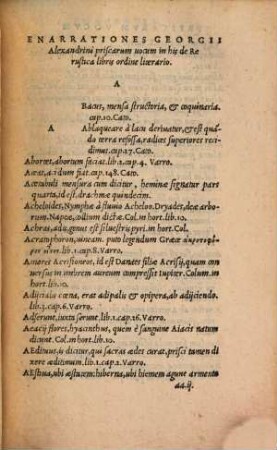 ENARRATIONES GEORGII
Alexandrini priscarum uocum in his de Re
rustica libris ordine literario.
A
Bacus, mensa structoria, & coquinaria.
cap.10. Cato.
A Ablaqueare à lacu deriuatur, & est quã
do terra refossa, radices superiores reci
dimus. cap. Cato.
Aboret, abortum faciat. lib.2. cap.4. Varro.
Acæt, acidum fiat. cap.148. Cato.
Acetabuli mensura cum dicitur, heminæ signatur pars
quarta, id est, drachmæ quindecim.
Acheloides, Nymphæ à fluuio Acheloo. Dryades, deæ arbo-
rum. Napææ, collium dictæ. Col. in hort. lib.10.
Achras, adis, genus est siluestris pyri. Col. in hort. lib.10.
Acratophoron, uineam. puto legendum Græcè
lib.1. cap.8. Varro.
Amores Acrisioneos, id est Danaës filiæ Acrisij, quam con
uersus in imbrem aureum compressit Iupiter. Colum.
in hort. lib.10.
Adijcialis cœna, erat adipalis & opipera, ab adijciendo.
lib.3. cap.6. Varro.
Adserunt, iuxta serunt. lib.1. cap.16. Varro.
Aeacij flores, hyacinthus, quem è sanguine Aiacis natum
dicunt. Col. in hort. lib.10.
AEdituus, is dicitur, qui sacras ædes curat. prisci tamen di
xere æditimum. lib.1. cap.2. Varro.
AEstiua, ubi æstuem: hiberna, ubi hiemem agunt armenta
aa.ij.